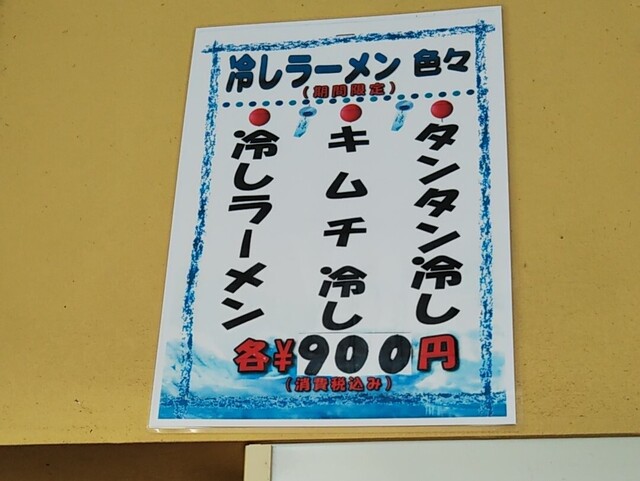 冷しラーメン 色々
(期間限定)
タンタン冷し
キムチ冷し
冷しラーメン
各¥900円
(消費税込み)